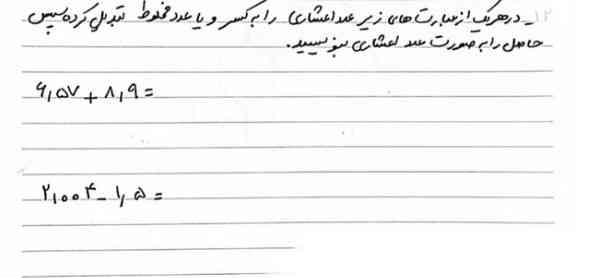 ۱۲_ در هر یک از عبارت های زیر عدد اعشاری را به کسر و یا عدد مخلوط تبدیل کرده سپس
حاصل را به صورت عدد اعشاری بنویسید.
۶,۵۷ + ۸,۹ =
۲,۰۰۴ _ ۱,۵ =